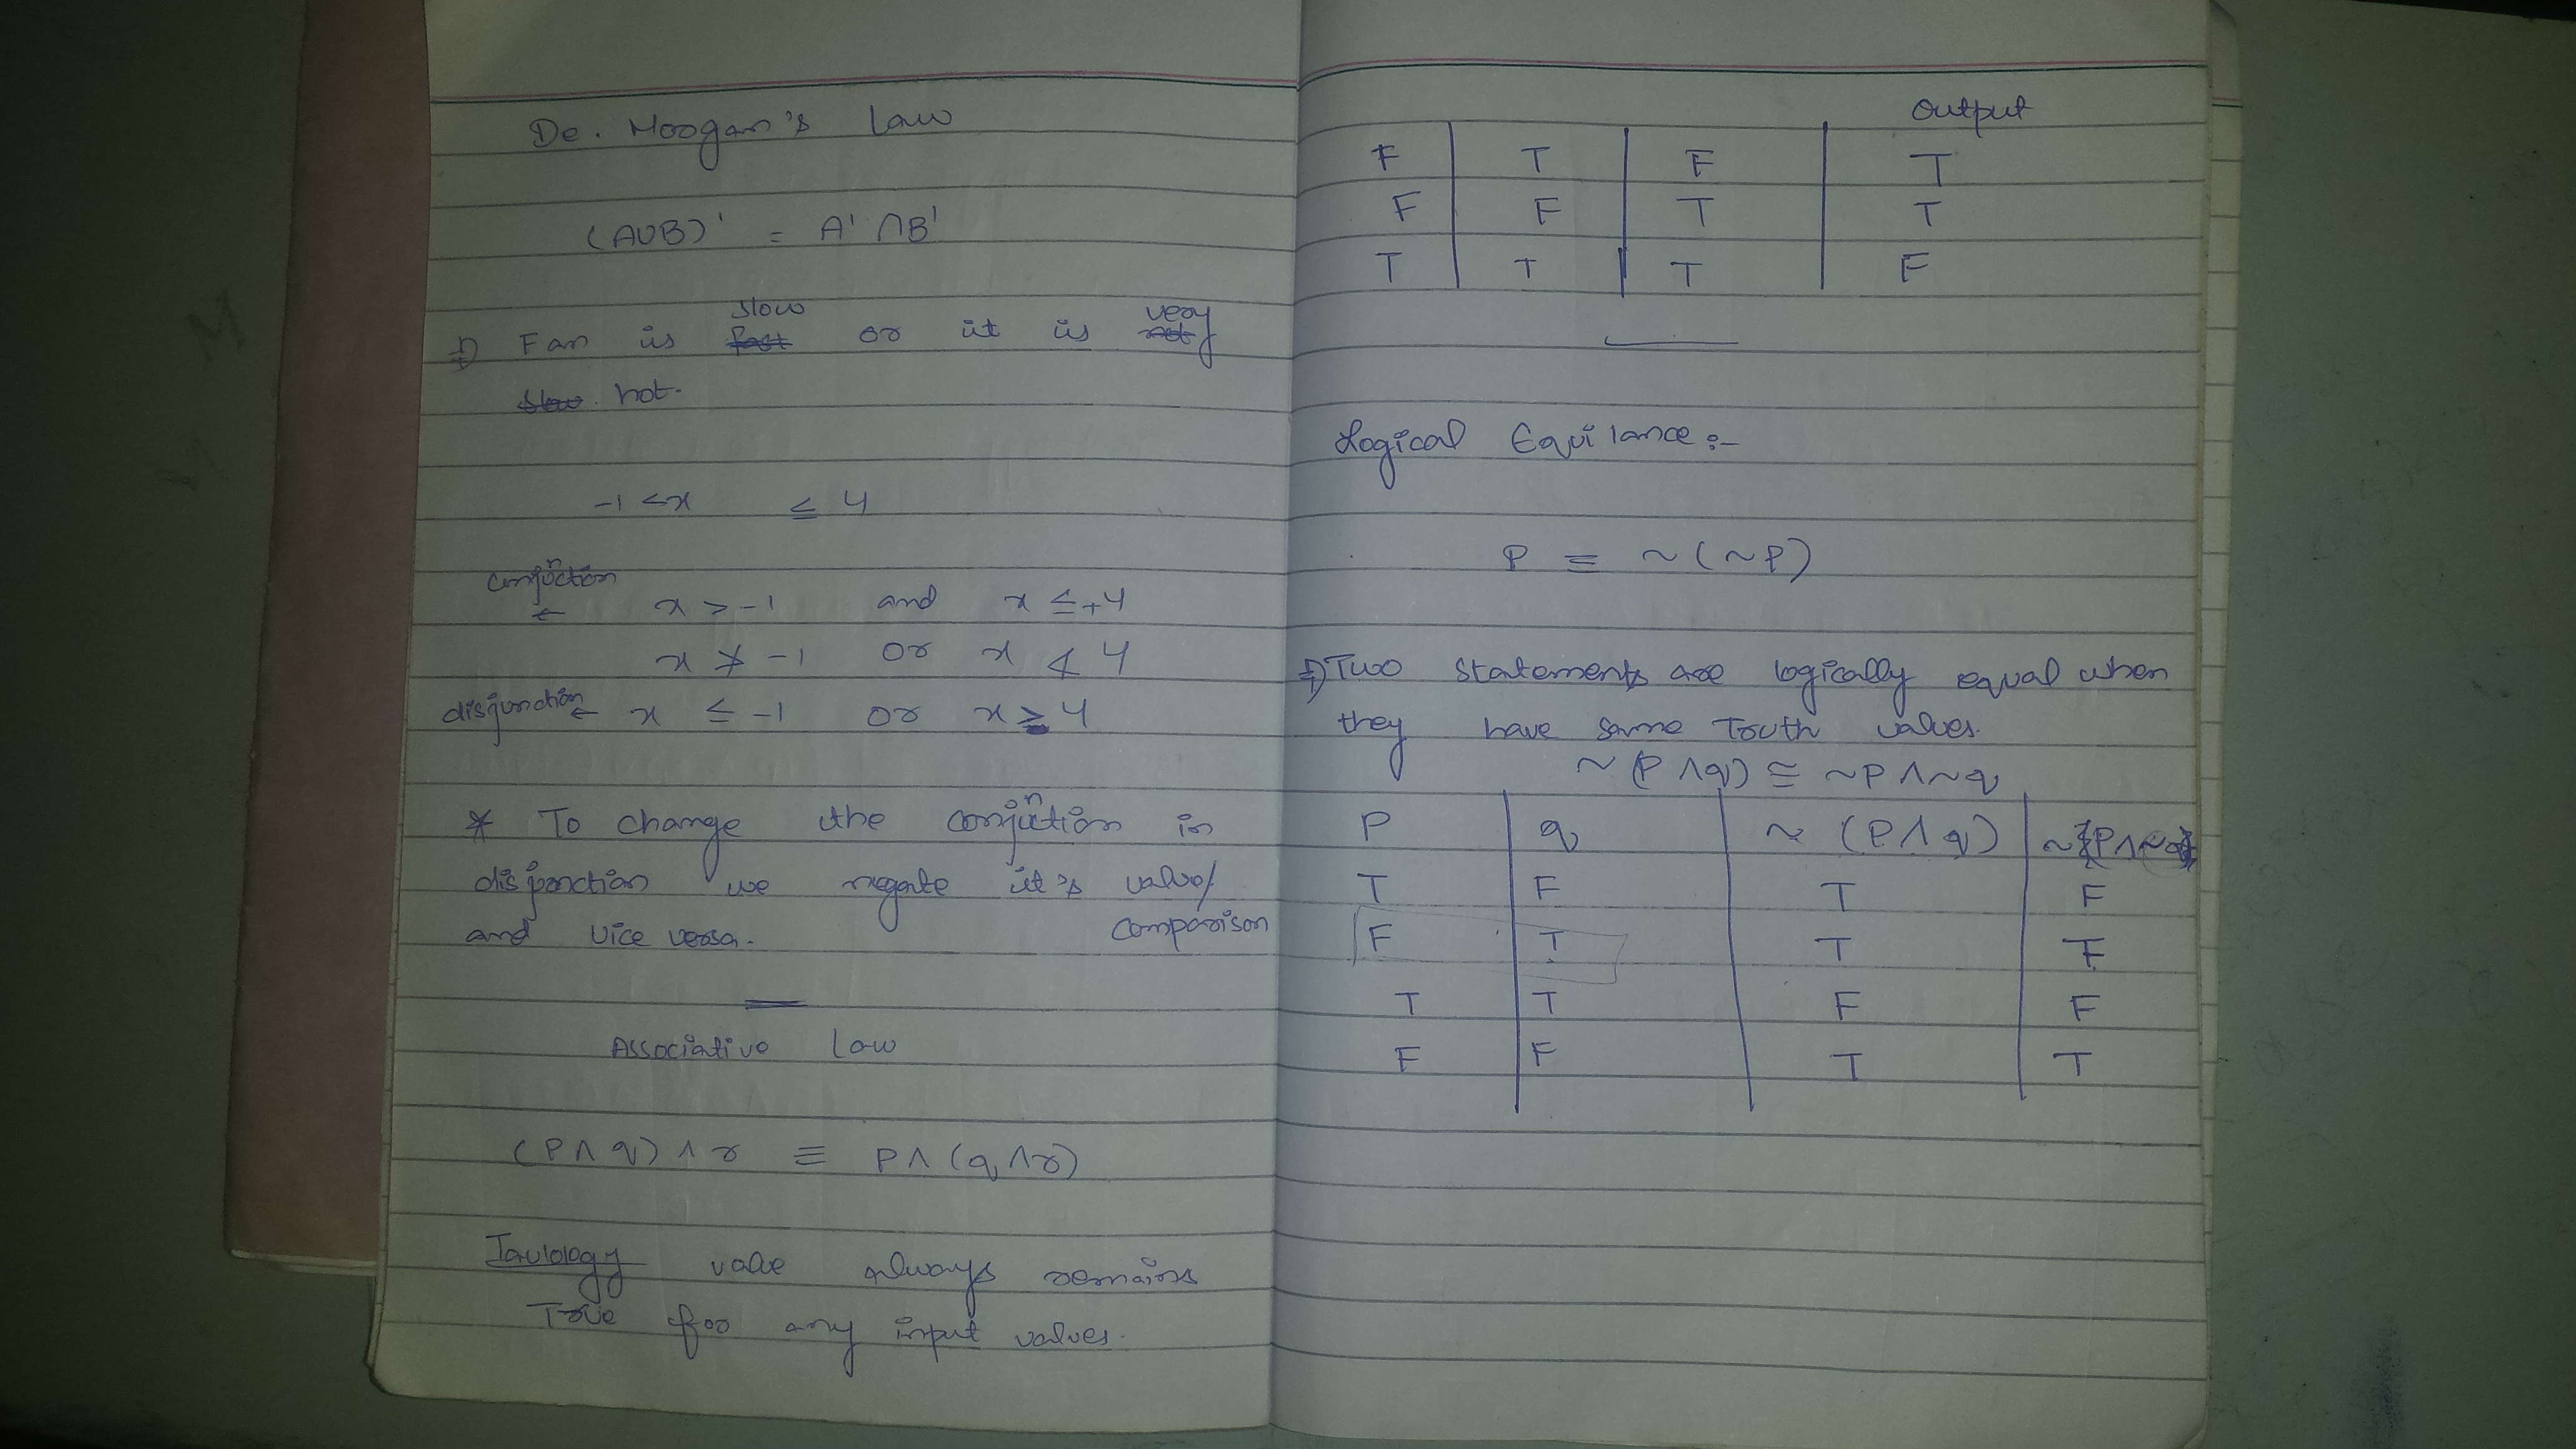 De. Morgan's Law
(A∪B)' = A' ∩B'
Slow very
Fan is fast or it is not
slow. hot.
-1 <x ≤ 4
conjuction
n
← x > -1 and x ≤ +4
x ≯ -1 or x ≮ 4
disjunction ← x ≤ -1 or x ≥ 4
* To change the conjuction in
n
disjonction we negate it's value/
and vice versa. comparison
Associative Law
(P∧q)∧r ≡ P∧(q∧r)
Taulology value always remains
True for any input values.
Output
F T F T
F F T T
T T T F
Logical Equilance :-
P ≡ ~(~P)
Two statements are logically equal when
they have same Truth values.
~(P∧q) ≅ ~P∧~q
P q ~ (P∧q) ~P∧~q
T F T F
F T T F
T T F F
F F T T